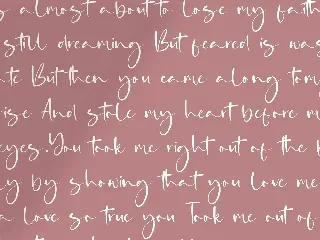 s almost about to Lose my faith
still dreaming But feared is was
ate But then you came along tom
ise And stole my heart before m
eyes. You took me right out of the
y by showing that you love me
a Love so true you Took me out of